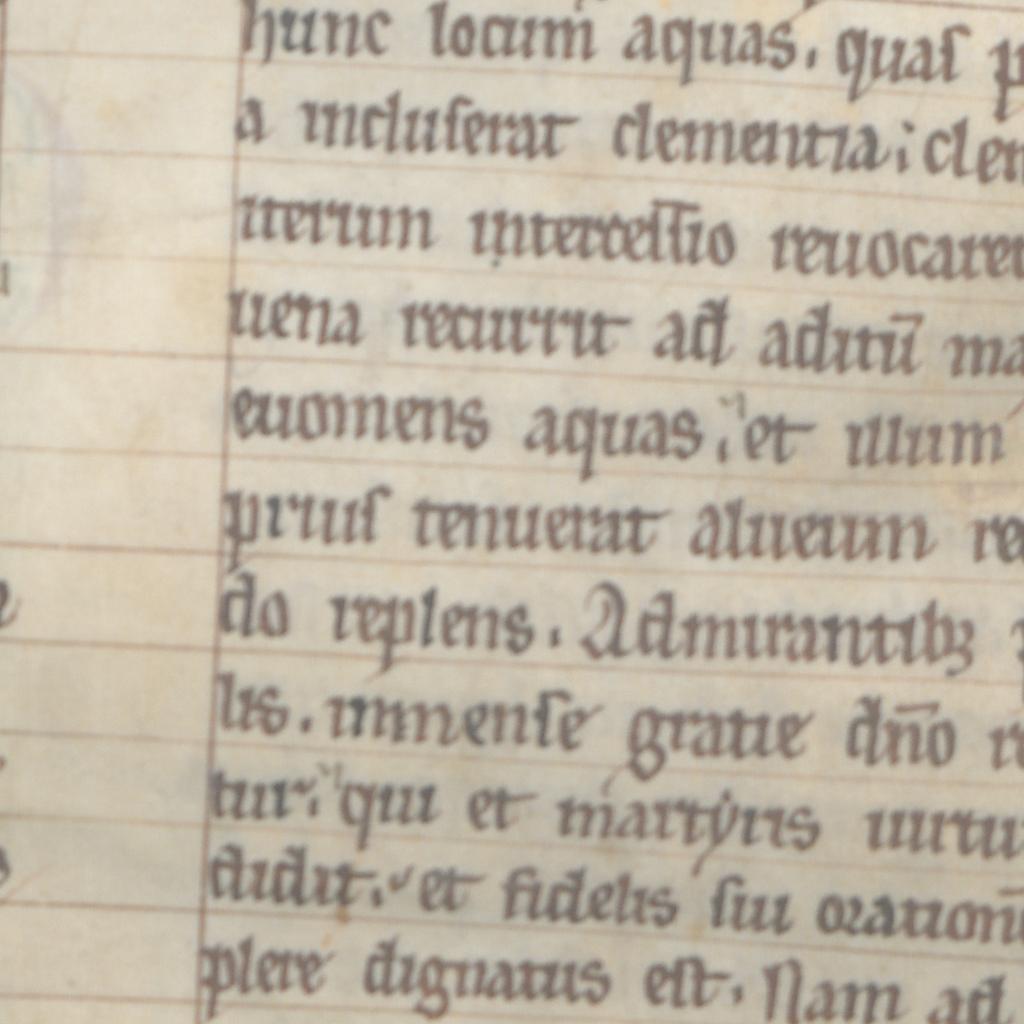 hunc locum aquas. quas p
a incluserat clementia; clem
iterum intercessio reuocaret
uena recurrit ad aditū ma
euomens aquas. et illum
prius tenuerat alueum re
do replens. Admirantibꝫ
lis. immense gratie dn̄o re
tur. qui et martyris uirtu
didit. et fidelis sui oration
plere dignatus est. Nam ad